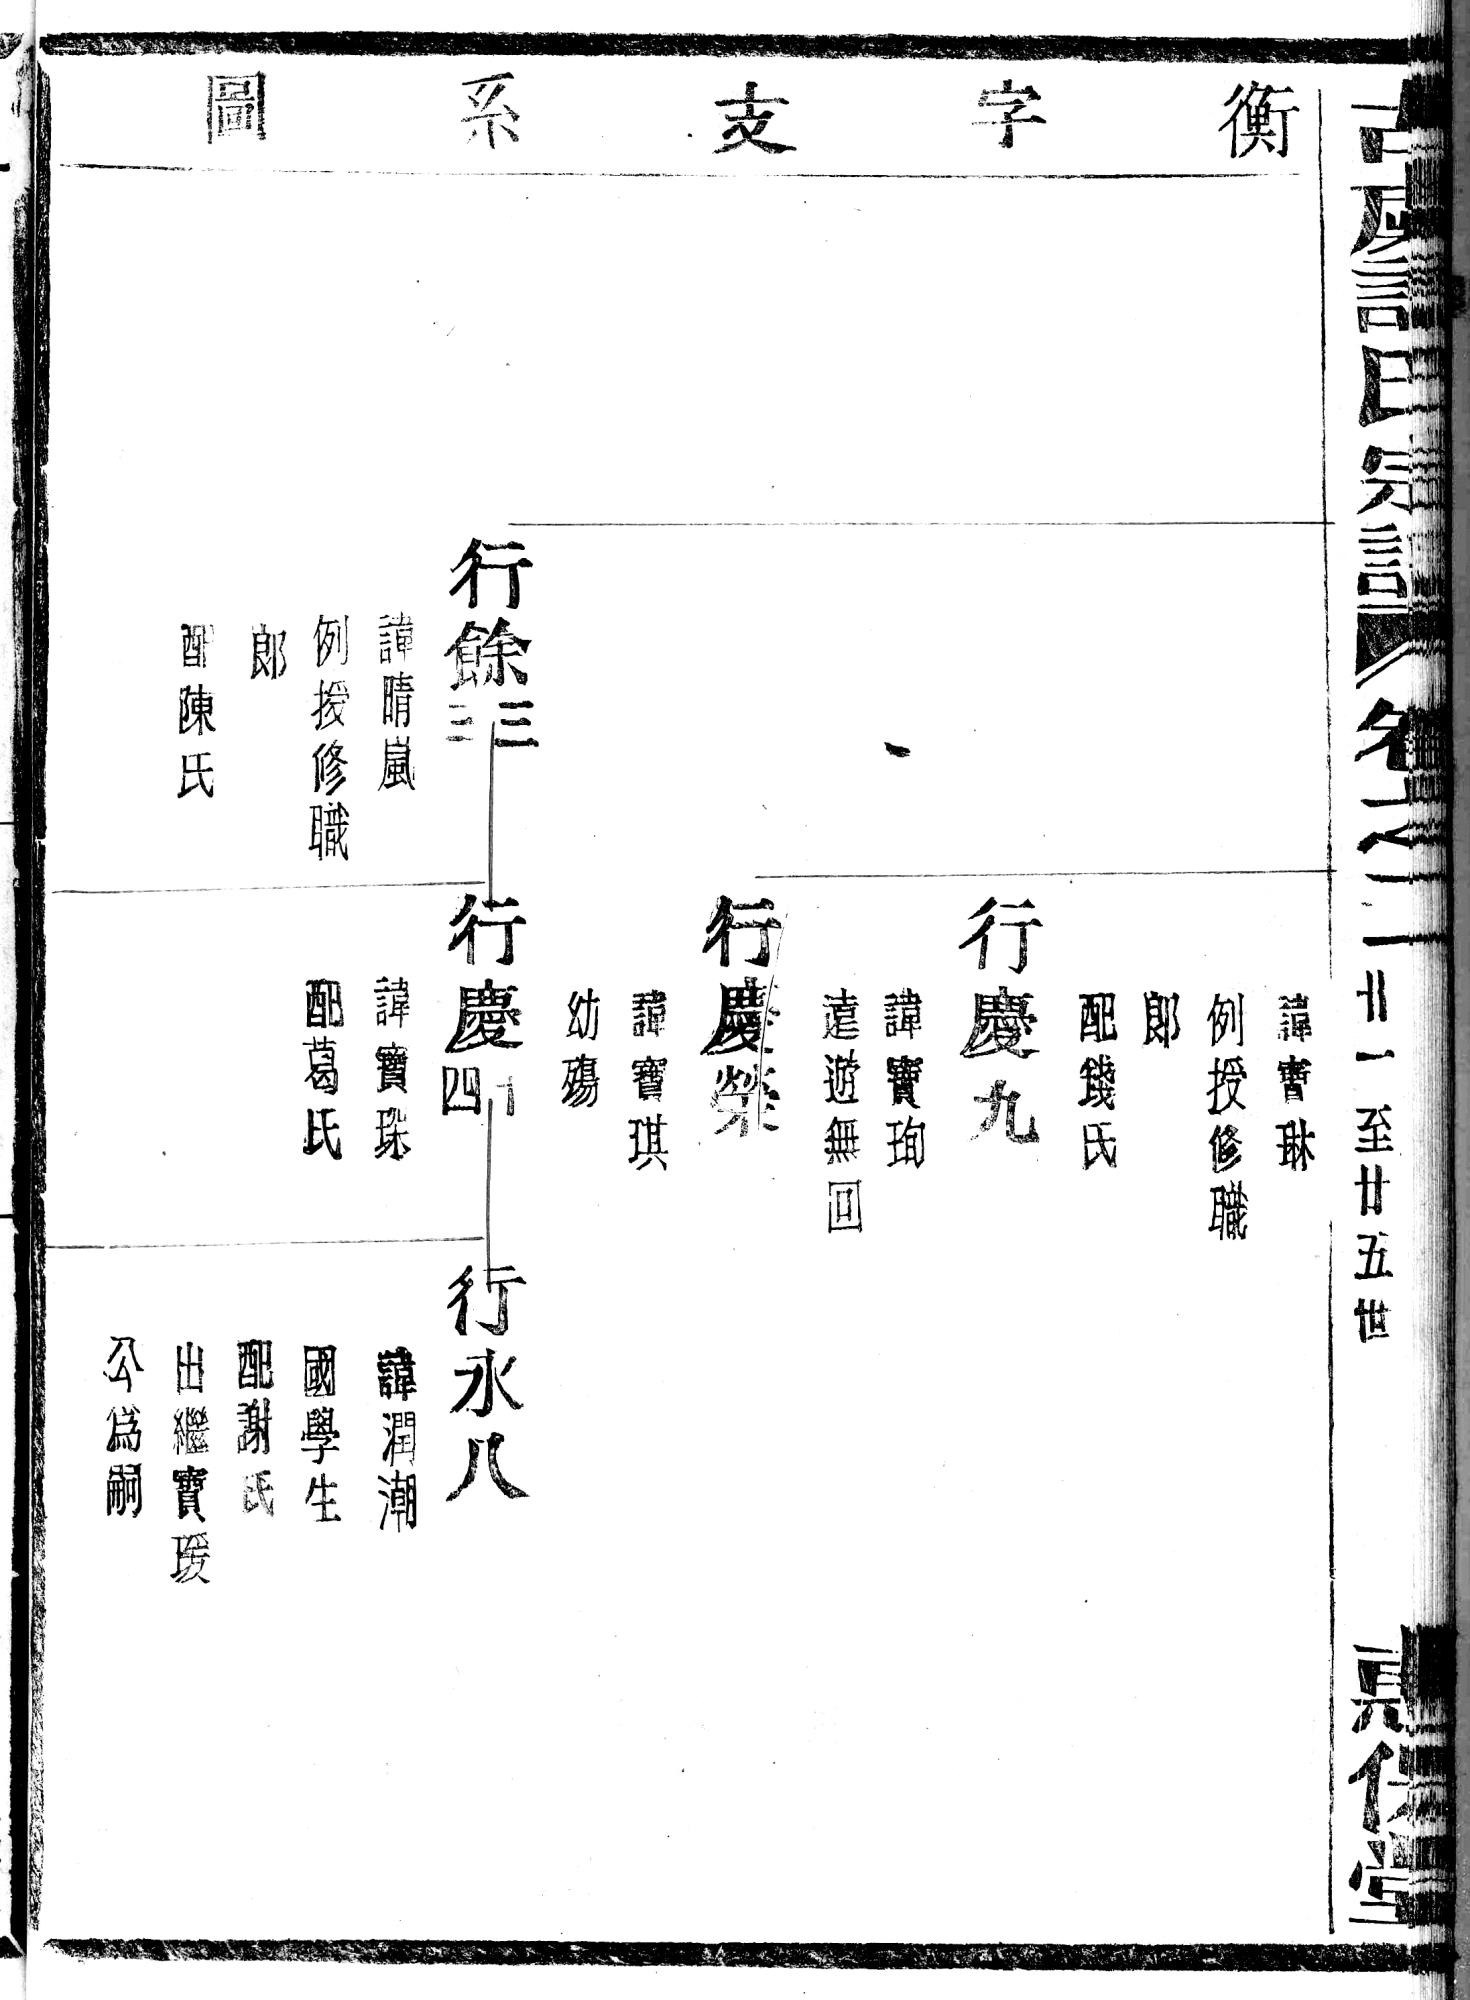 衡字支系圖
行餘三三
諱晴嵐
例授修職
郎
配陳氏
諱寶琳
例授修職
郎
配錢氏
行慶九
諱寶珣
遠遊無回
行慶榮
諱寶琪
幼殤
行慶四十
諱寶琛
配葛氏
行永八
諱潤潮
國學生
配謝氏
出繼寶瑗
公爲嗣
氏宗譜
卷之二
廿一至廿五世
堂